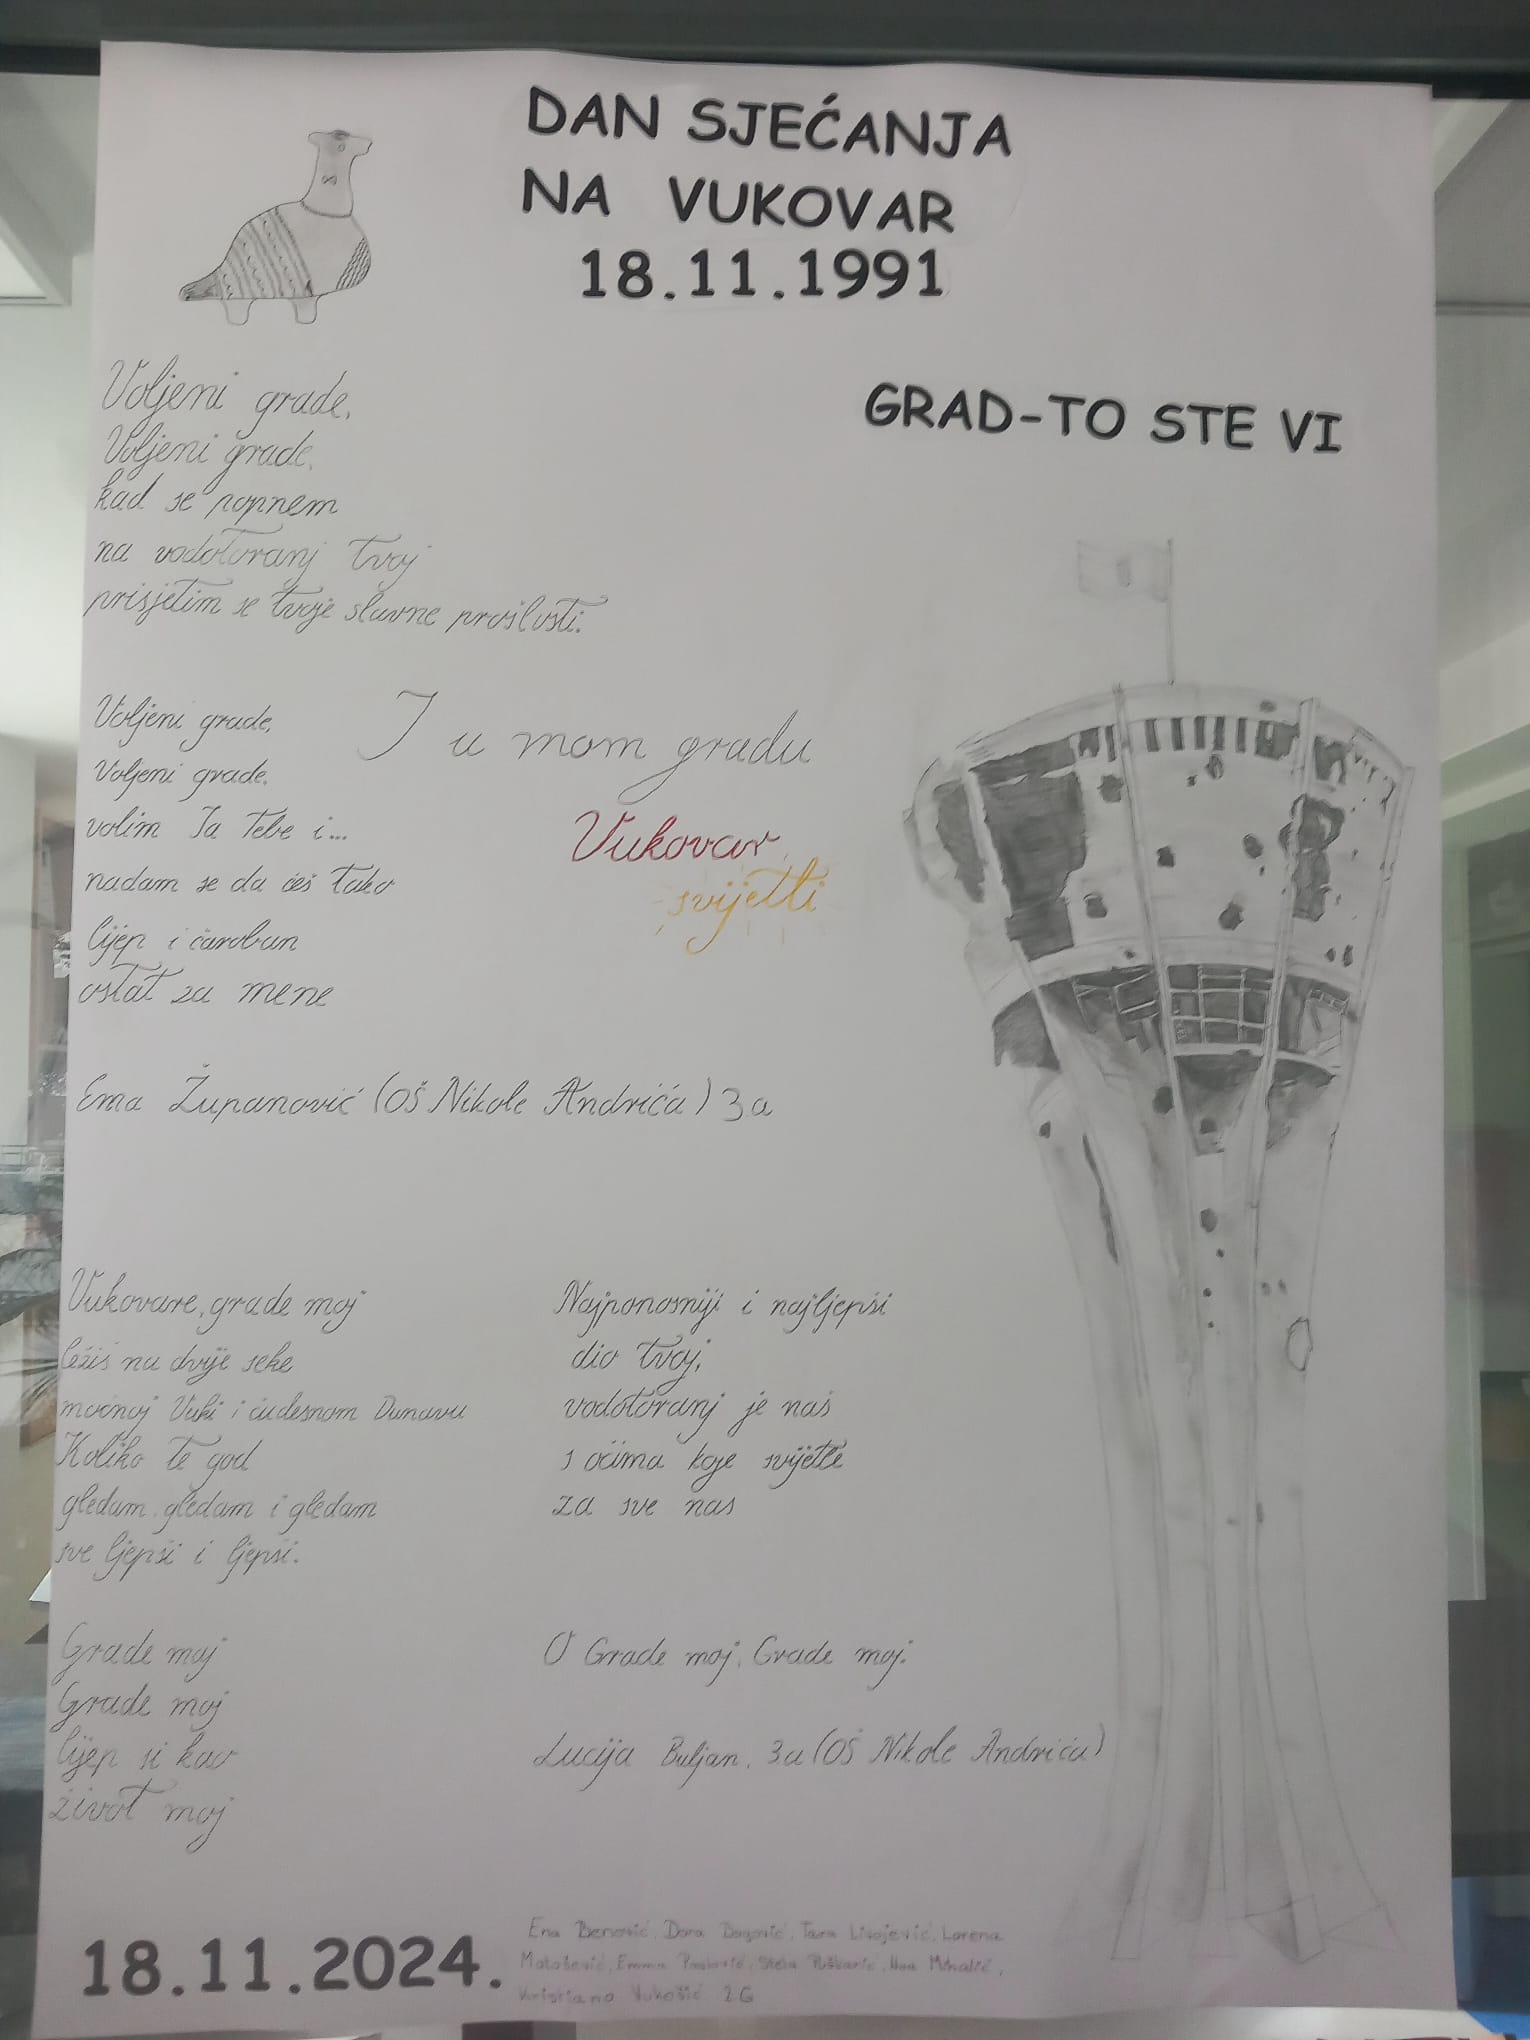 DAN SJEĆANJA
NA VUKOVAR
18.11.1991
GRAD-TO STE VI
Voljeni grade,
Voljeni grade,
kad se popnem
na vodotoranj tvoj
prisjetim se tvoje slavne prošlosti.
Voljeni grade,
Voljeni grade,
volim Ja Tebe i...
nadam se da ćeš Tako
lijep i čaroban
ostat za mene
I u mom gradu
Vukovar
svijetli
Ema Županović (OŠ Nikole Andrića) 3a
Vukovare, grade moj
ležiš na dvije reke
moćnoj Vuki i čudesnom Dunavu
Koliko te god
gledam, gledam i gledam
sve ljepši i ljepši.
Grade moj
Grade moj
lijep si kao
život moj
Najponosniji i najljepši
dio tvoj,
vodotoranj je naš
s očima koje svijetle
za sve nas
O Grade moj, Grade moj.
Lucija Buljan, 3a (OŠ Nikole Andrića)
18.11.2024.
Ena Dora Tara Livojević, Lorena
Matošević, Emma Stela Puškarić, Mihalić,
Kristiana Vukošić 2G